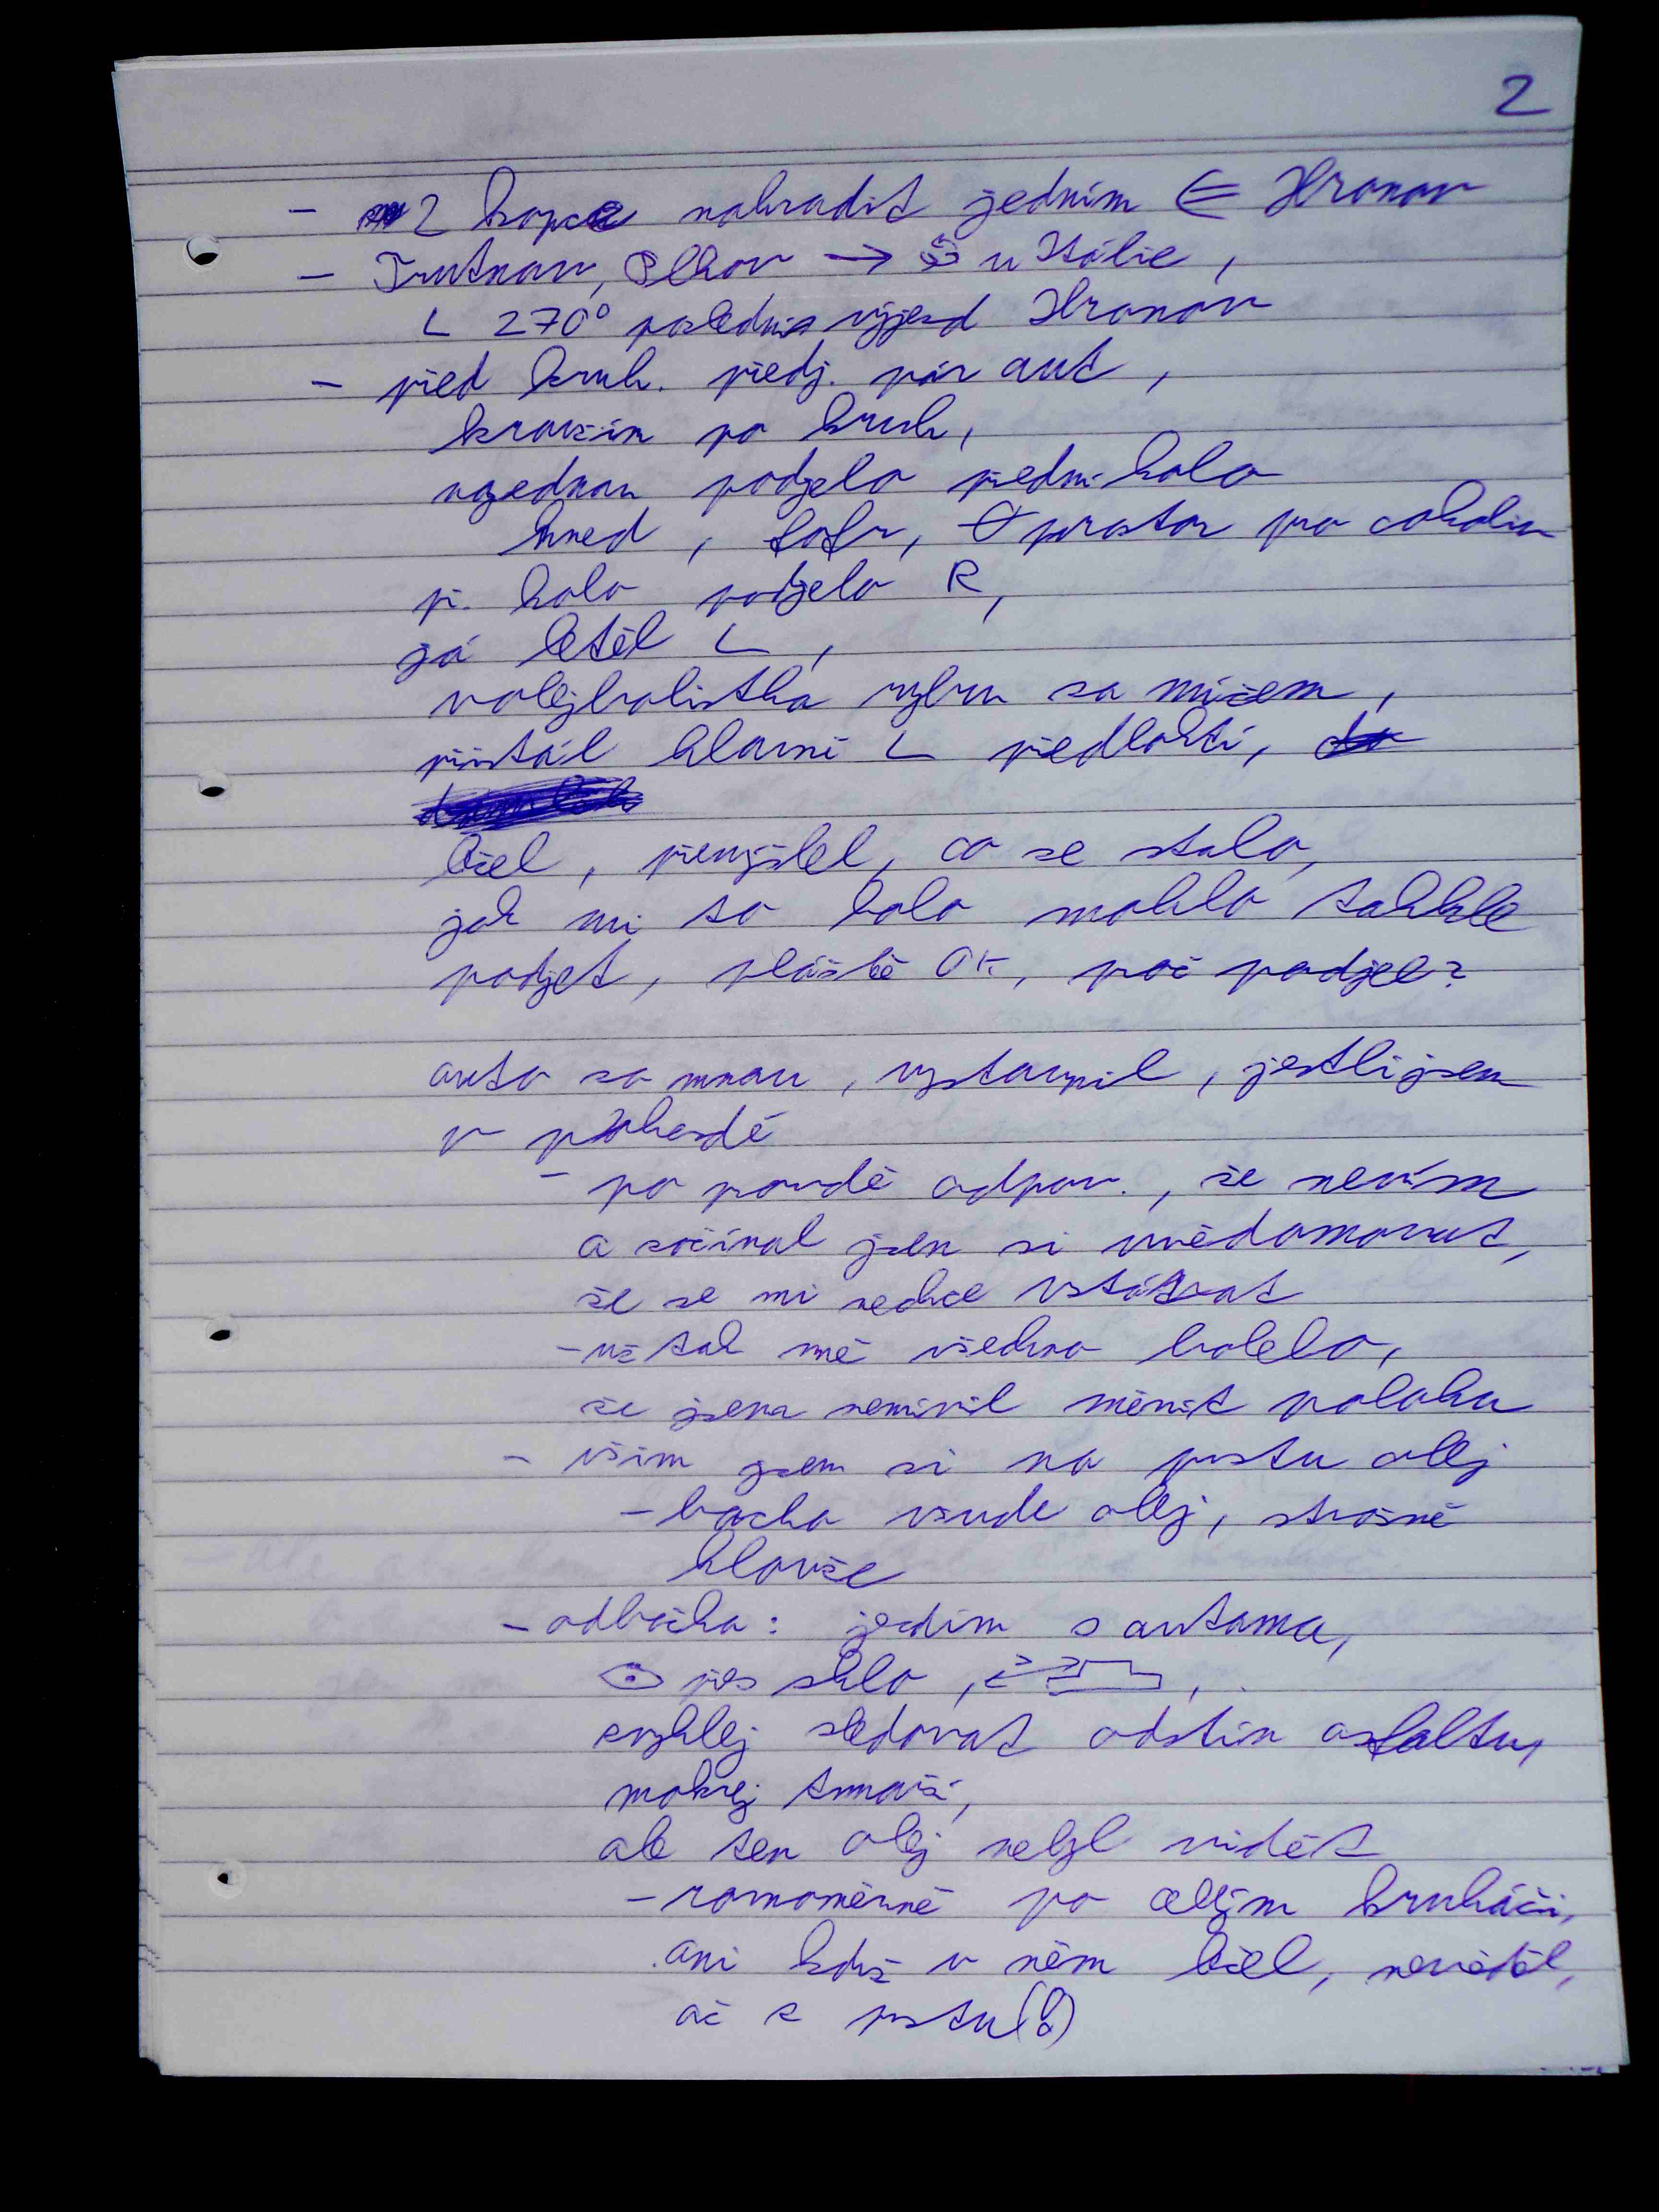 2
- 2 kopce nahradit jedním ∈ Hronov
- Trutnov, → u Itálie,
L 270° poslední výjezd Hronov
- před kruh. předj. pár aut,
kroužím po kruh,
najednou podjelo přední kolo
hned, fofr, ∅ prostor pro cokoliv
př. kolo podjelo R,
já letěl L,
volejbalistka vybru za míčem,
přistál hlavně L předloktí,
ležel, přemýšlel, co se stalo,
jak mi to kolo mohlo takhle
podjet, pláště OK, proč podjel?
auto za mnou, vystoupil, jestli jsem
v pohodě
- po pravdě odpov., že nevím
a začínal jsem si uvědomovat,
že se mi nechce vstávat
- už tak mě všechno bolelo,
že jsem nemínil měnit polohu
- všim jsem si na prstu olej
- bacha všude olej, strašně
klouže
- odbočka: jezdím s autama,
přes sklo,
zvyklej sledovat odstín asfaltu,
mokrej tmavší,
ale ten olej nebyl vidět
- rovnoměrně po celým kruháči,
ani když v něm ležel, neviděl,
až z prstu(!)